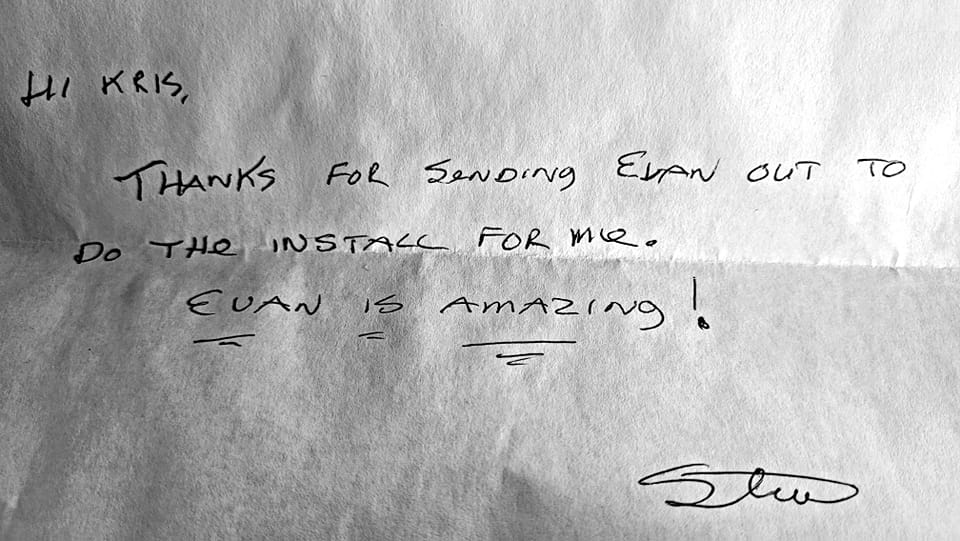 HI KRIS,
THANKS FOR SENDING EVAN OUT TO
DO THE INSTALL FOR ME.
EVAN IS AMAZING!